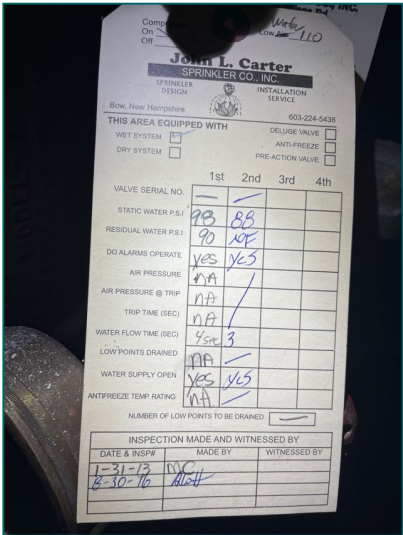 Water
On
Off
Low Air 110
John L. Carter
SPRINKLER CO., INC.
SPRINKLER DESIGN
INSTALLATION SERVICE
Bow, New Hampshire
603-224-5438
THIS AREA EQUIPPED WITH
WET SYSTEM
DRY SYSTEM
DELUGE VALVE
ANTI-FREEZE
PRE-ACTION VALVE
1st 2nd 3rd 4th
VALVE SERIAL NO. — —
STATIC WATER P.S.I 98 88
RESIDUAL WATER P.S.I 90 NF
DO ALARMS OPERATE yes yes
AIR PRESSURE NA
AIR PRESSURE @ TRIP NA
TRIP TIME (SEC) NA
WATER FLOW TIME (SEC) 4 sec 3
LOW POINTS DRAINED NA —
WATER SUPPLY OPEN yes yes
ANTIFREEZE TEMP RATING NA —
NUMBER OF LOW POINTS TO BE DRAINED —
INSPECTION MADE AND WITNESSED BY
DATE & INSP# MADE BY WITNESSED BY
1-31-13 MC
8-30-16